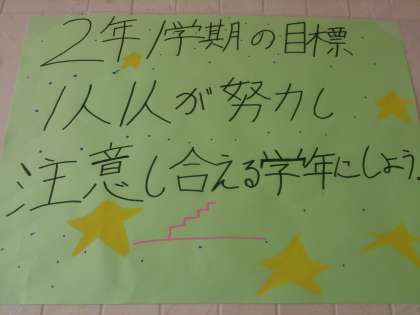 2年1学期の目標
1人1人が努力し
注意し合える学年にしよう.